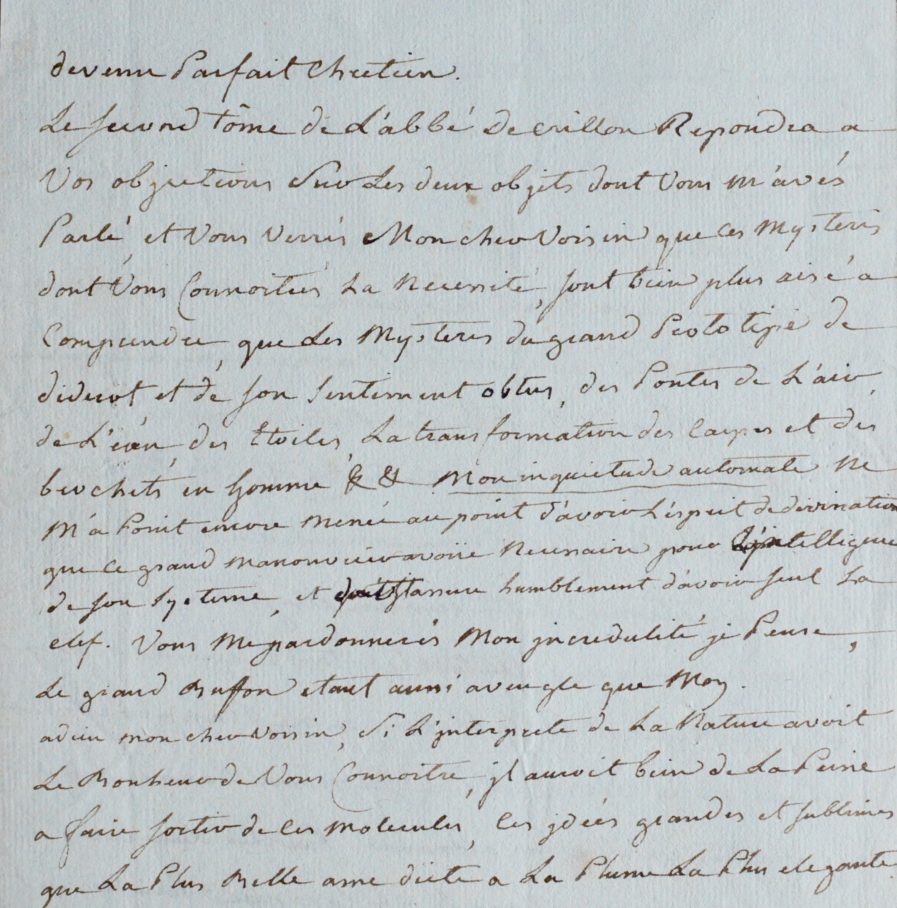 devenu Parfait Chretien.
Le second tôme de L'abbé de crillon Repondra a
Vos objections Sur Les deux objets dont Vous m'avés
Parlé, et Vous Verrés Mon cher Voisin que ces Mysteris
dont Vous Connoitrés La Necessité, sont bien plus aisé a
Comprendre, que Les Mysteres du grand Prototipe de
diderot et de son Sentiment obtus, des Pontes de L'air,
de L'eau, des Etoiles, La transformation des Carpes et des
brochets en homme, & & Mon inquietude automate Ne
M'a Point encore menée au point d'avoir L'esprit de divination
que ce grand manouvrier avoüe Necessaire pour L'intelligence
de son Systeme, et dont assure humblement d'avoir seul La
clef. Vous Me pardonnerés Mon incredulité, je Pense,
Le grand Buffon etant aussi aveugle que Moy.
adieu mon cher Voisin, Si L'jnterprete de La Nature avoit
Le Bonheur de Vous Connoitre, jl auroit bien de La Peine
a faire sortir de ces Molecules, Les jdées grandes et sublimes
que La Plus Belle ame dicte a La Plume La Plus elegante.